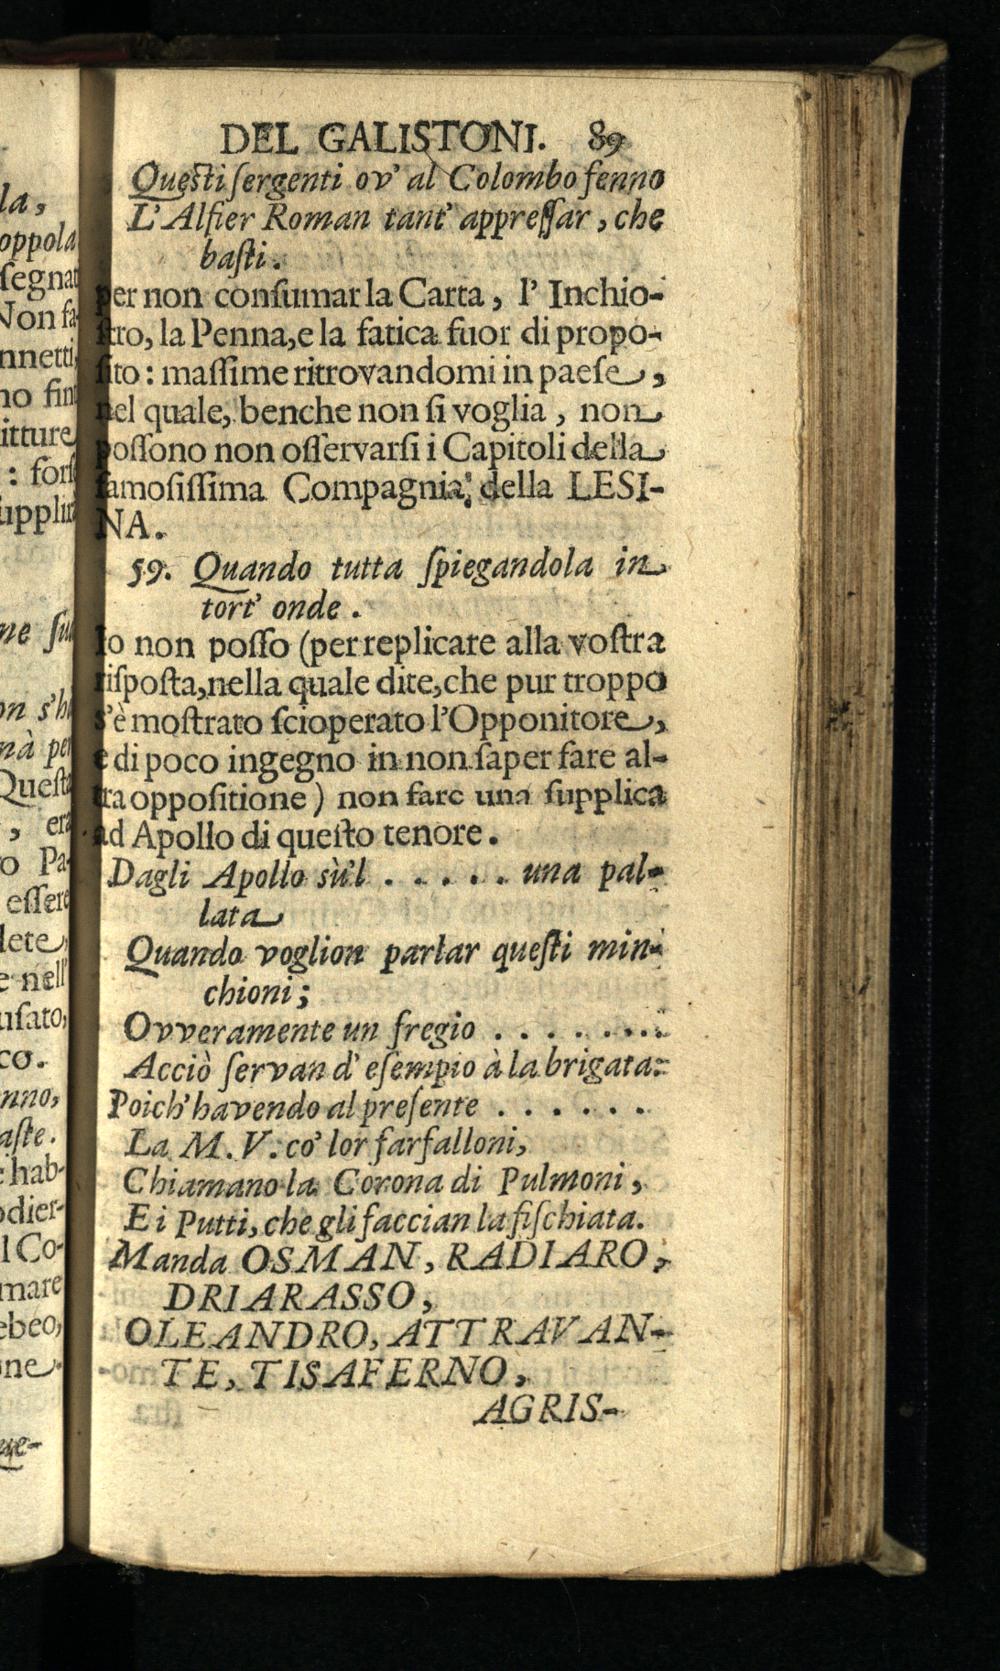 la,
oppola
ſegnat
Non fa-
nnetti,
no fin
itture
: forſ
upplir
ne ſu
on s'ha
mà per
Queſta
, era
ro Pa-
eſſere
lete,
e nell'
uſato,
co.
nno,
aſte.
hab-
odier-
l Co-
mare
ebeo,
ne
ue-
DEL GALISTONI. 89
Queſti ſergenti ov' al Colombo fenno
L'Alfier Roman tant' appreſſar, che
baſti.
per non conſumar la Carta, l' Inchio-
ſtro, la Penna, e la fatica fuor di propo-
ſito: maſſime ritrovandomi in paeſe,
nel quale, benche non ſi voglia, non
poſſono non oſſervarſi i Capitoli della
famoſiſſima Compagnia, della LESI-
NA.
59. Quando tutta ſpiegandola in
tort' onde.
Io non poſſo (per replicare alla voſtra
riſpoſta, nella quale dite, che pur troppo
s'è moſtrato ſcioperato l'Opponitore,
e di poco ingegno in non ſaper fare al-
tra oppoſitione) non fare una ſupplica
ad Apollo di queſto tenore.
Dagli Apollo sù'l . . . . . . una pal-
lata
Quando voglion parlar queſti min-
chioni;
Ovveramente un fregio . . . . . . . .
Acciò ſervan d' eſempio à la brigata:
Poich' havendo al preſente . . . . . . .
La M. V. co' lor farfalloni,
Chiamano la Corona di Pulmoni,
E i Putti, che gli faccian la fiſchiata.
Manda OSMAN, RADIARO,
DRIARASSO,
OLEANDRO, ATTRAVAN-
TE, TISAFERNO,
AGRIS-